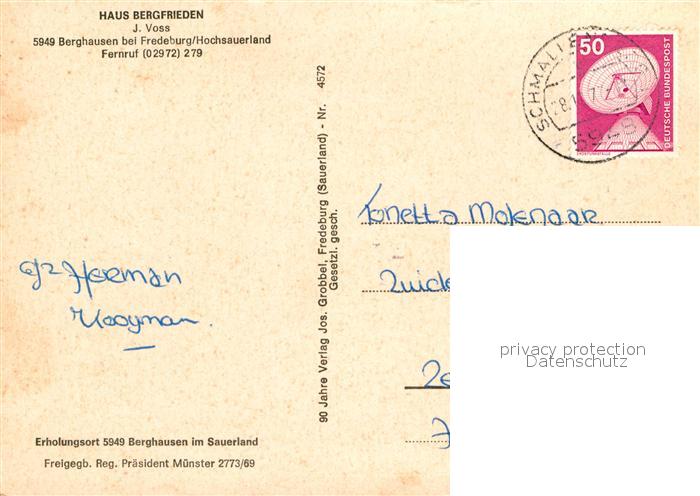 HAUS BERGFRIEDEN
J. Voss
5949 Berghausen bei Fredeburg/Hochsauerland
Fernruf (02972) 279
90 Jahre Verlag Jos. Grobbel, Fredeburg (Sauerland) - Nr. 4572
Gesetzl. gesch.
50
DEUTSCHE BUNDESPOST
ERDEFUNKSTELLE
SCHMALLEN
Tonetta Molenaar
Zuide
Ze
Herman
Kooyman.
privacy protection
Datenschutz
Erholungsort 5949 Berghausen im Sauerland
Freigegb. Reg. Präsident Münster 2773/69